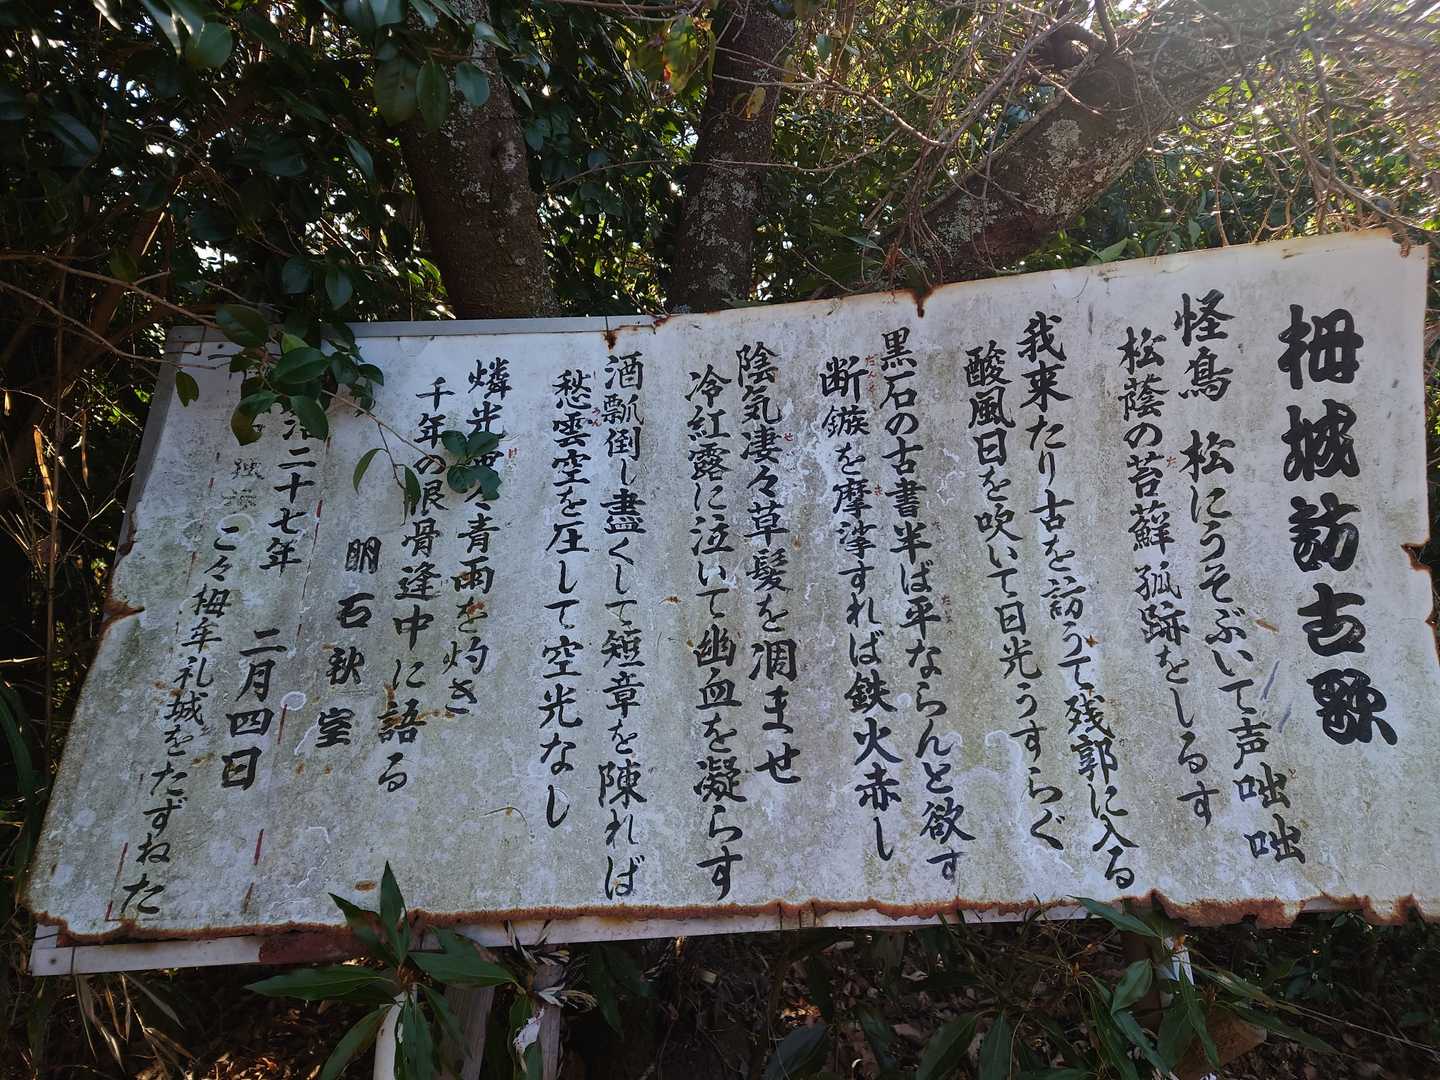 栂城訪古歌
怪鳥 松にうそぶいて声咄咄
松蔭の苔蘚孤跡をしるす
我来たり古を訪うて残郭に入る
酸風日を吹いて日光うすらぐ
黒石の古書半ば平ならんと欲す
断鏃を摩挲すれば鉄火赤し
陰気凄々草髪を凋ませ
冷紅露に泣いて幽血を凝らす
酒瓢倒し盡くして短章を陳れば
愁雲空を圧して空光なし
燐光 々青雨を灼き
千年の恨骨逢中に語る
明石秋室
二十七年 二月四日
こゝ栂牟礼城をたずねた